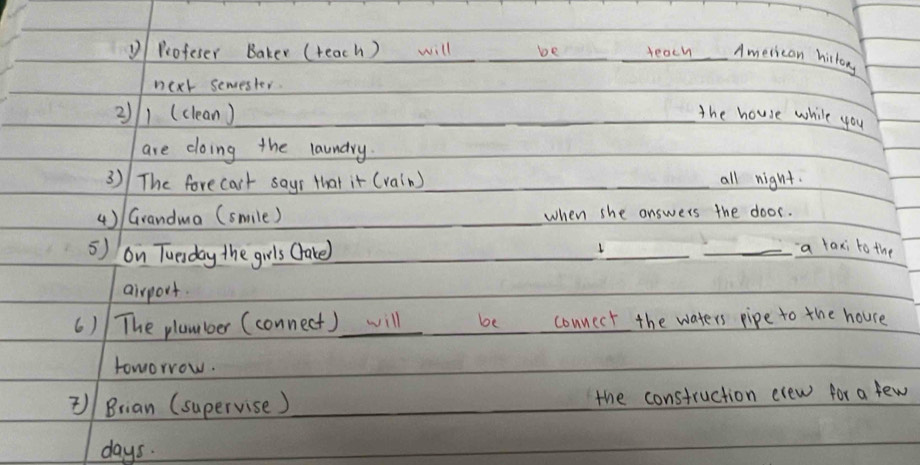 1) Profeser Baker (teach) will be teach American history
next semester.
2) I (clean) the house while you
are doing the laundry.
3) The forecast says that it (rain) all night.
4) Grandma (smile) when she answers the door.
5) On Tuesday the girls (take) a taxi to the
airport.
6) The plumber (connect) will be connect the waters pipe to the house
tomorrow.
7) Brian (supervise) the construction crew for a few
days.